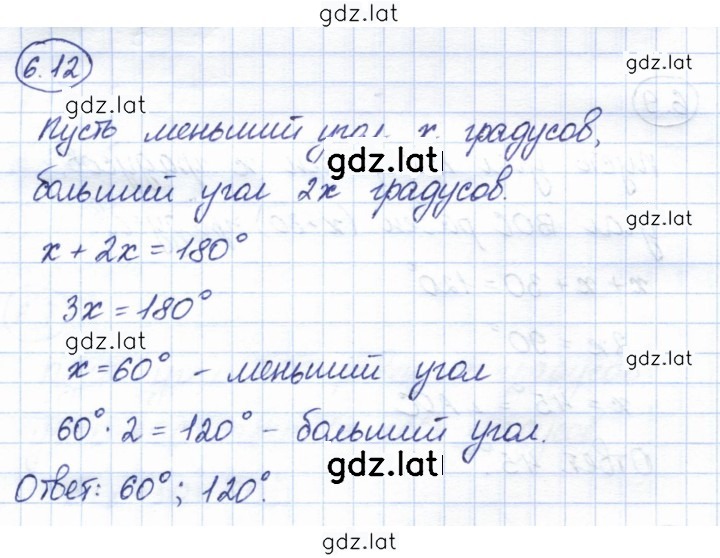 gdz.lat
6.12
gdz.lat
gdz.lat
Пусть меньший угол x градусов,
gdz.lat
больший угол 2x градусов.
gdz.lat
x + 2x = 180°
3x = 180°
gdz.lat
gdz.lat
x = 60° – меньший угол
60° · 2 = 120° – больший угол.
gdz.lat
Ответ: 60°; 120°.
gdz.lat